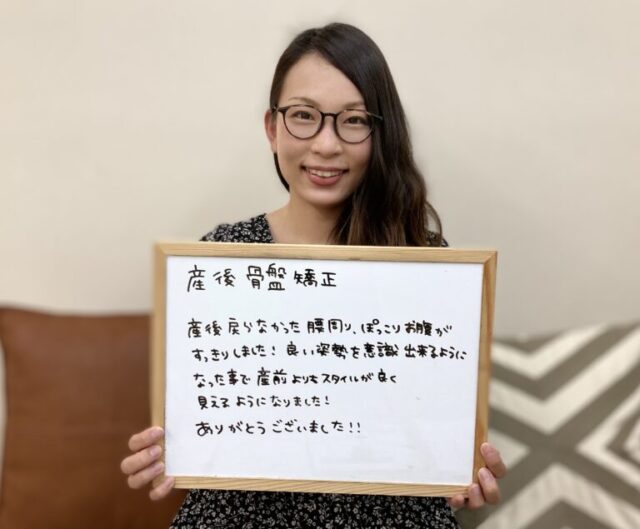 産後骨盤矯正
産後戻らなかった腰周り、ぽっこりお腹が
すっきりしました！良い姿勢を意識出来るように
なった事で産前よりもスタイルが良く
見えるようになりました！
ありがとうございました!!